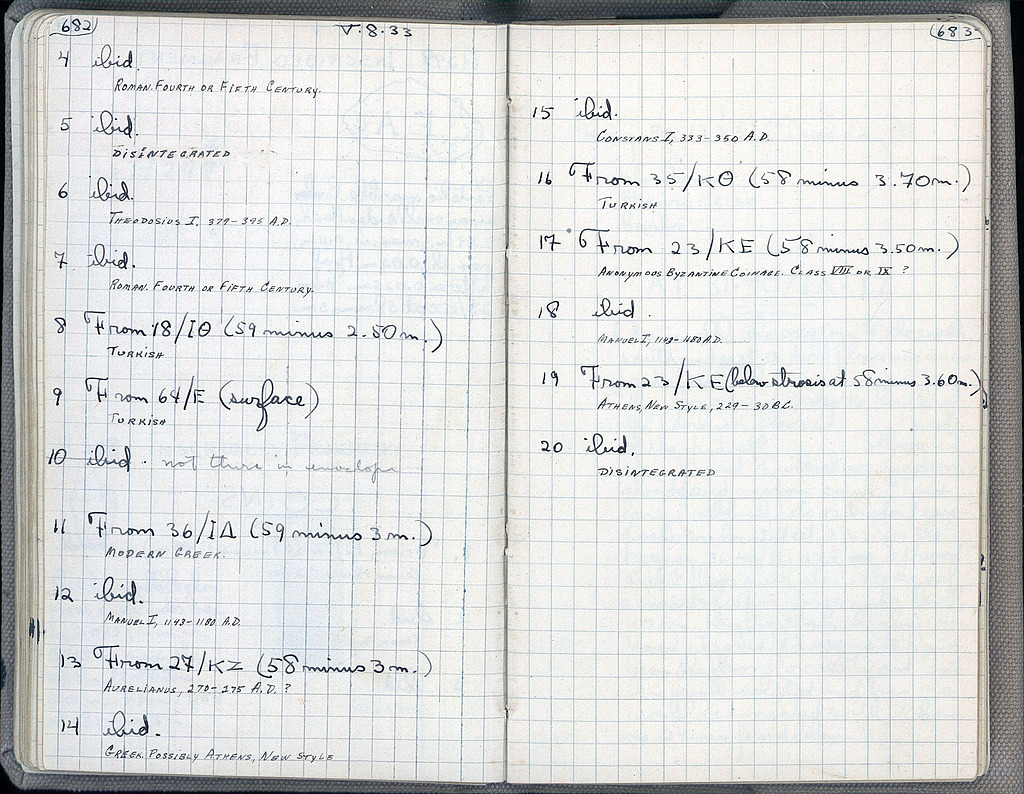 682
V.8.33
4 ibid.
ROMAN. FOURTH OR FIFTH CENTURY.
5 ibid.
DISINTEGRATED
6 ibid.
THEODOSIUS I, 379-395 A.D.
7 ibid.
ROMAN. FOURTH OR FIFTH CENTURY.
8 From 18/ΙΘ (59 minus 2.50 m.)
TURKISH
9 From 64/Ε (surface)
TURKISH
10 ibid. not there in envelope
11 From 36/ΙΔ (59 minus 3 m.)
MODERN GREEK.
12 ibid.
MANUEL I, 1143-1180 A.D.
13 From 27/ΚΖ (58 minus 3 m.)
AURELIANUS, 270-275 A.D. ?
14 ibid.
GREEK. POSSIBLY ATHENS, NEW STYLE
683
15 ibid.
CONSTANS I, 333-350 A.D.
16 From 35/ΚΘ (58 minus 3.70 m.)
TURKISH
17 From 23/ΚΕ (58 minus 3.50 m.)
ANONYMOUS BYZANTINE COINAGE. CLASS VIII OR IX ?
18 ibid.
MANUEL I, 1143-1180 A.D.
19 From 23/ΚΕ (below strosis at 58 minus 3.60 m.)
ATHENS, NEW STYLE, 229-30 B.C.
20 ibid.
DISINTEGRATED